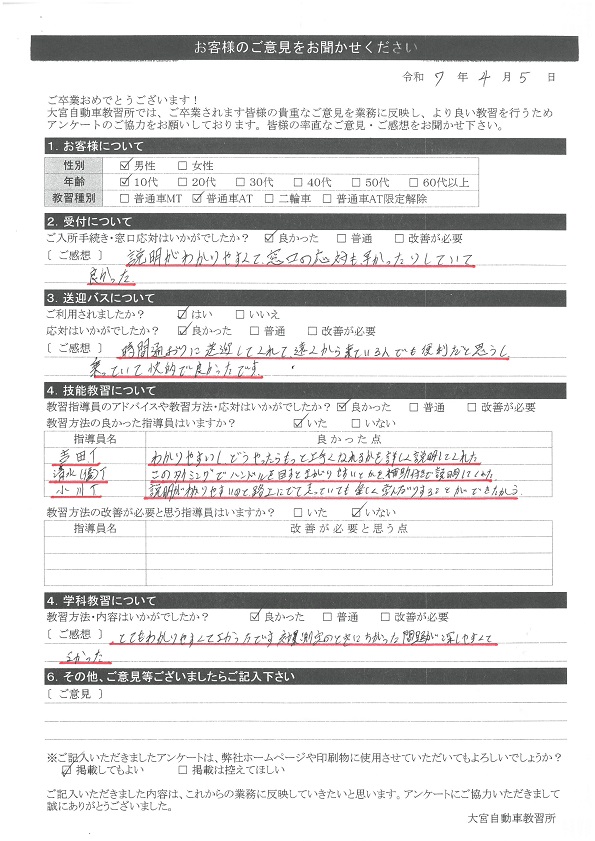 お客様のご意見をお聞かせください
令和 7 年 4 月 5 日
ご卒業おめでとうございます！
大宮自動車教習所では、ご卒業されます皆様の貴重なご意見を業務に反映し、より良い教習を行うため
アンケートのご協力をお願いしております。皆様の率直なご意見・ご感想をお聞かせ下さい。
1. お客様について
性別 ☑男性 □女性
年齢 ☑10代 □20代 □30代 □40代 □50代 □60代以上
教習種別 □普通車MT ☑普通車AT □二輪車 □普通車AT限定解除
2. 受付について
ご入所手続き・窓口応対はいかがでしたか？ ☑良かった □普通 □改善が必要
〔 ご感想 〕 説明がわかりやすくて、窓口の応対も早かったりしていて
良かった
3. 送迎バスについて
ご利用されましたか？ ☑はい □いいえ
応対はいかがでしたか？ ☑良かった □普通 □改善が必要
〔 ご感想 〕 時間通おりに送迎してくれて、遠くから来ている人でも便利だと思うし
乗っていて快的で良かったです。
4. 技能教習について
教習指導員のアドバイスや教習方法・応対はいかがでしたか？ ☑良かった □普通 □改善が必要
教習方法の良かった指導員はいますか？ ☑いた □いない
指導員名 良かった点
吉田T わかりやすいし、どうやったらもっと上手くなれるかを詳しく説明してくれた
清水 T このタイミングでハンドルを回すと曲がりやすいとかを
小川T 説明が分かりやすいので、路上にでて走っていても楽しく
教習方法の改善が必要と思う指導員はいますか？ □いた ☑いない
指導員名 改善が必要と思う点
4. 学科教習について
教習方法・内容はいかがでしたか？ ☑良かった □普通 □改善が必要
〔 ご感想 〕 とてもわかりやすくて 効果測定のときに 問題が
よかった
6. その他、ご意見等ございましたらご記入下さい
〔 ご意見 〕
※ご記入いただきましたアンケートは、弊社ホームページや印刷物に使用させていただいてもよろしいでしょうか？
☑掲載してもよい □掲載は控えてほしい
ご記入いただきました内容は、これからの業務に反映していきたいと思います。アンケートにご協力いただきまして
誠にありがとうございました。
大宮自動車教習所